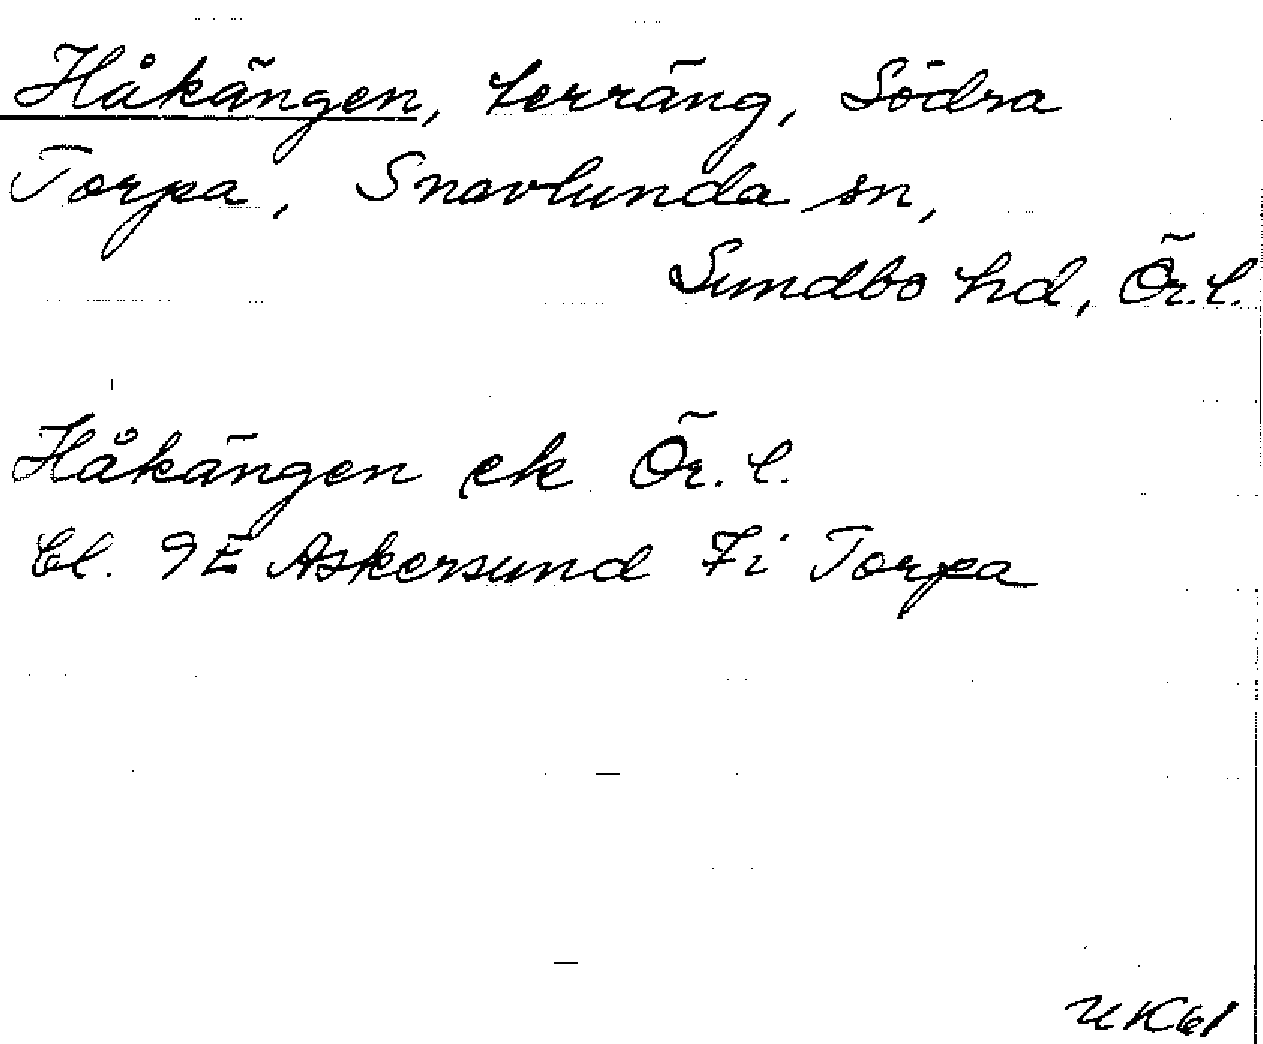 Håkängen, terräng, Södra
Torpa, Snavlunda sn,
Sundbo hd, Ör. l.
Håkängen ek Ör. l.
bl. 9E Askersund 7i Torpa
UK61